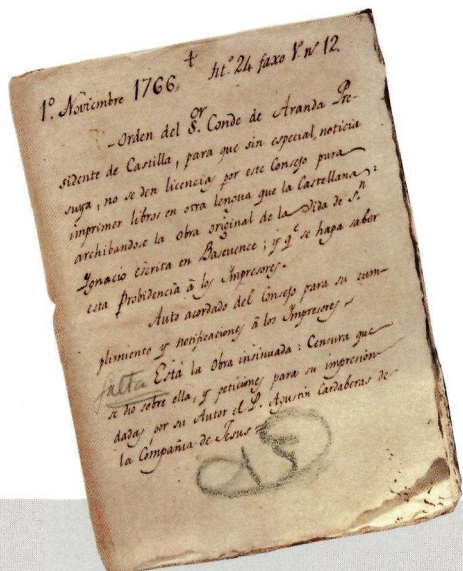 1º. Noviembre 1766.
+
lit.º 24 faxo 1º nº 12.
Orden del S.or Conde de Aranda Pre-
sidente de Castilla, para que sin especial noticia
suya, no se den licencias por este Consejo para
imprimer libros en otra lengua que la Castellana:
archibandose la obra original de la Vida de S.n
Ygnacio escrita en Bascuence; y q.e se haga saber
esta Probidencia à los Impresores.
Auto acordado del Consejo para su cum-
plimiento y notificaciones à los Impresores =
falta Està la Obra insinuada: Censura que
se dio sobre ella, y peticiones para su impresion
dadas por su Autor el P. Agustin Cardaberas de
la Compañia de Jesus =